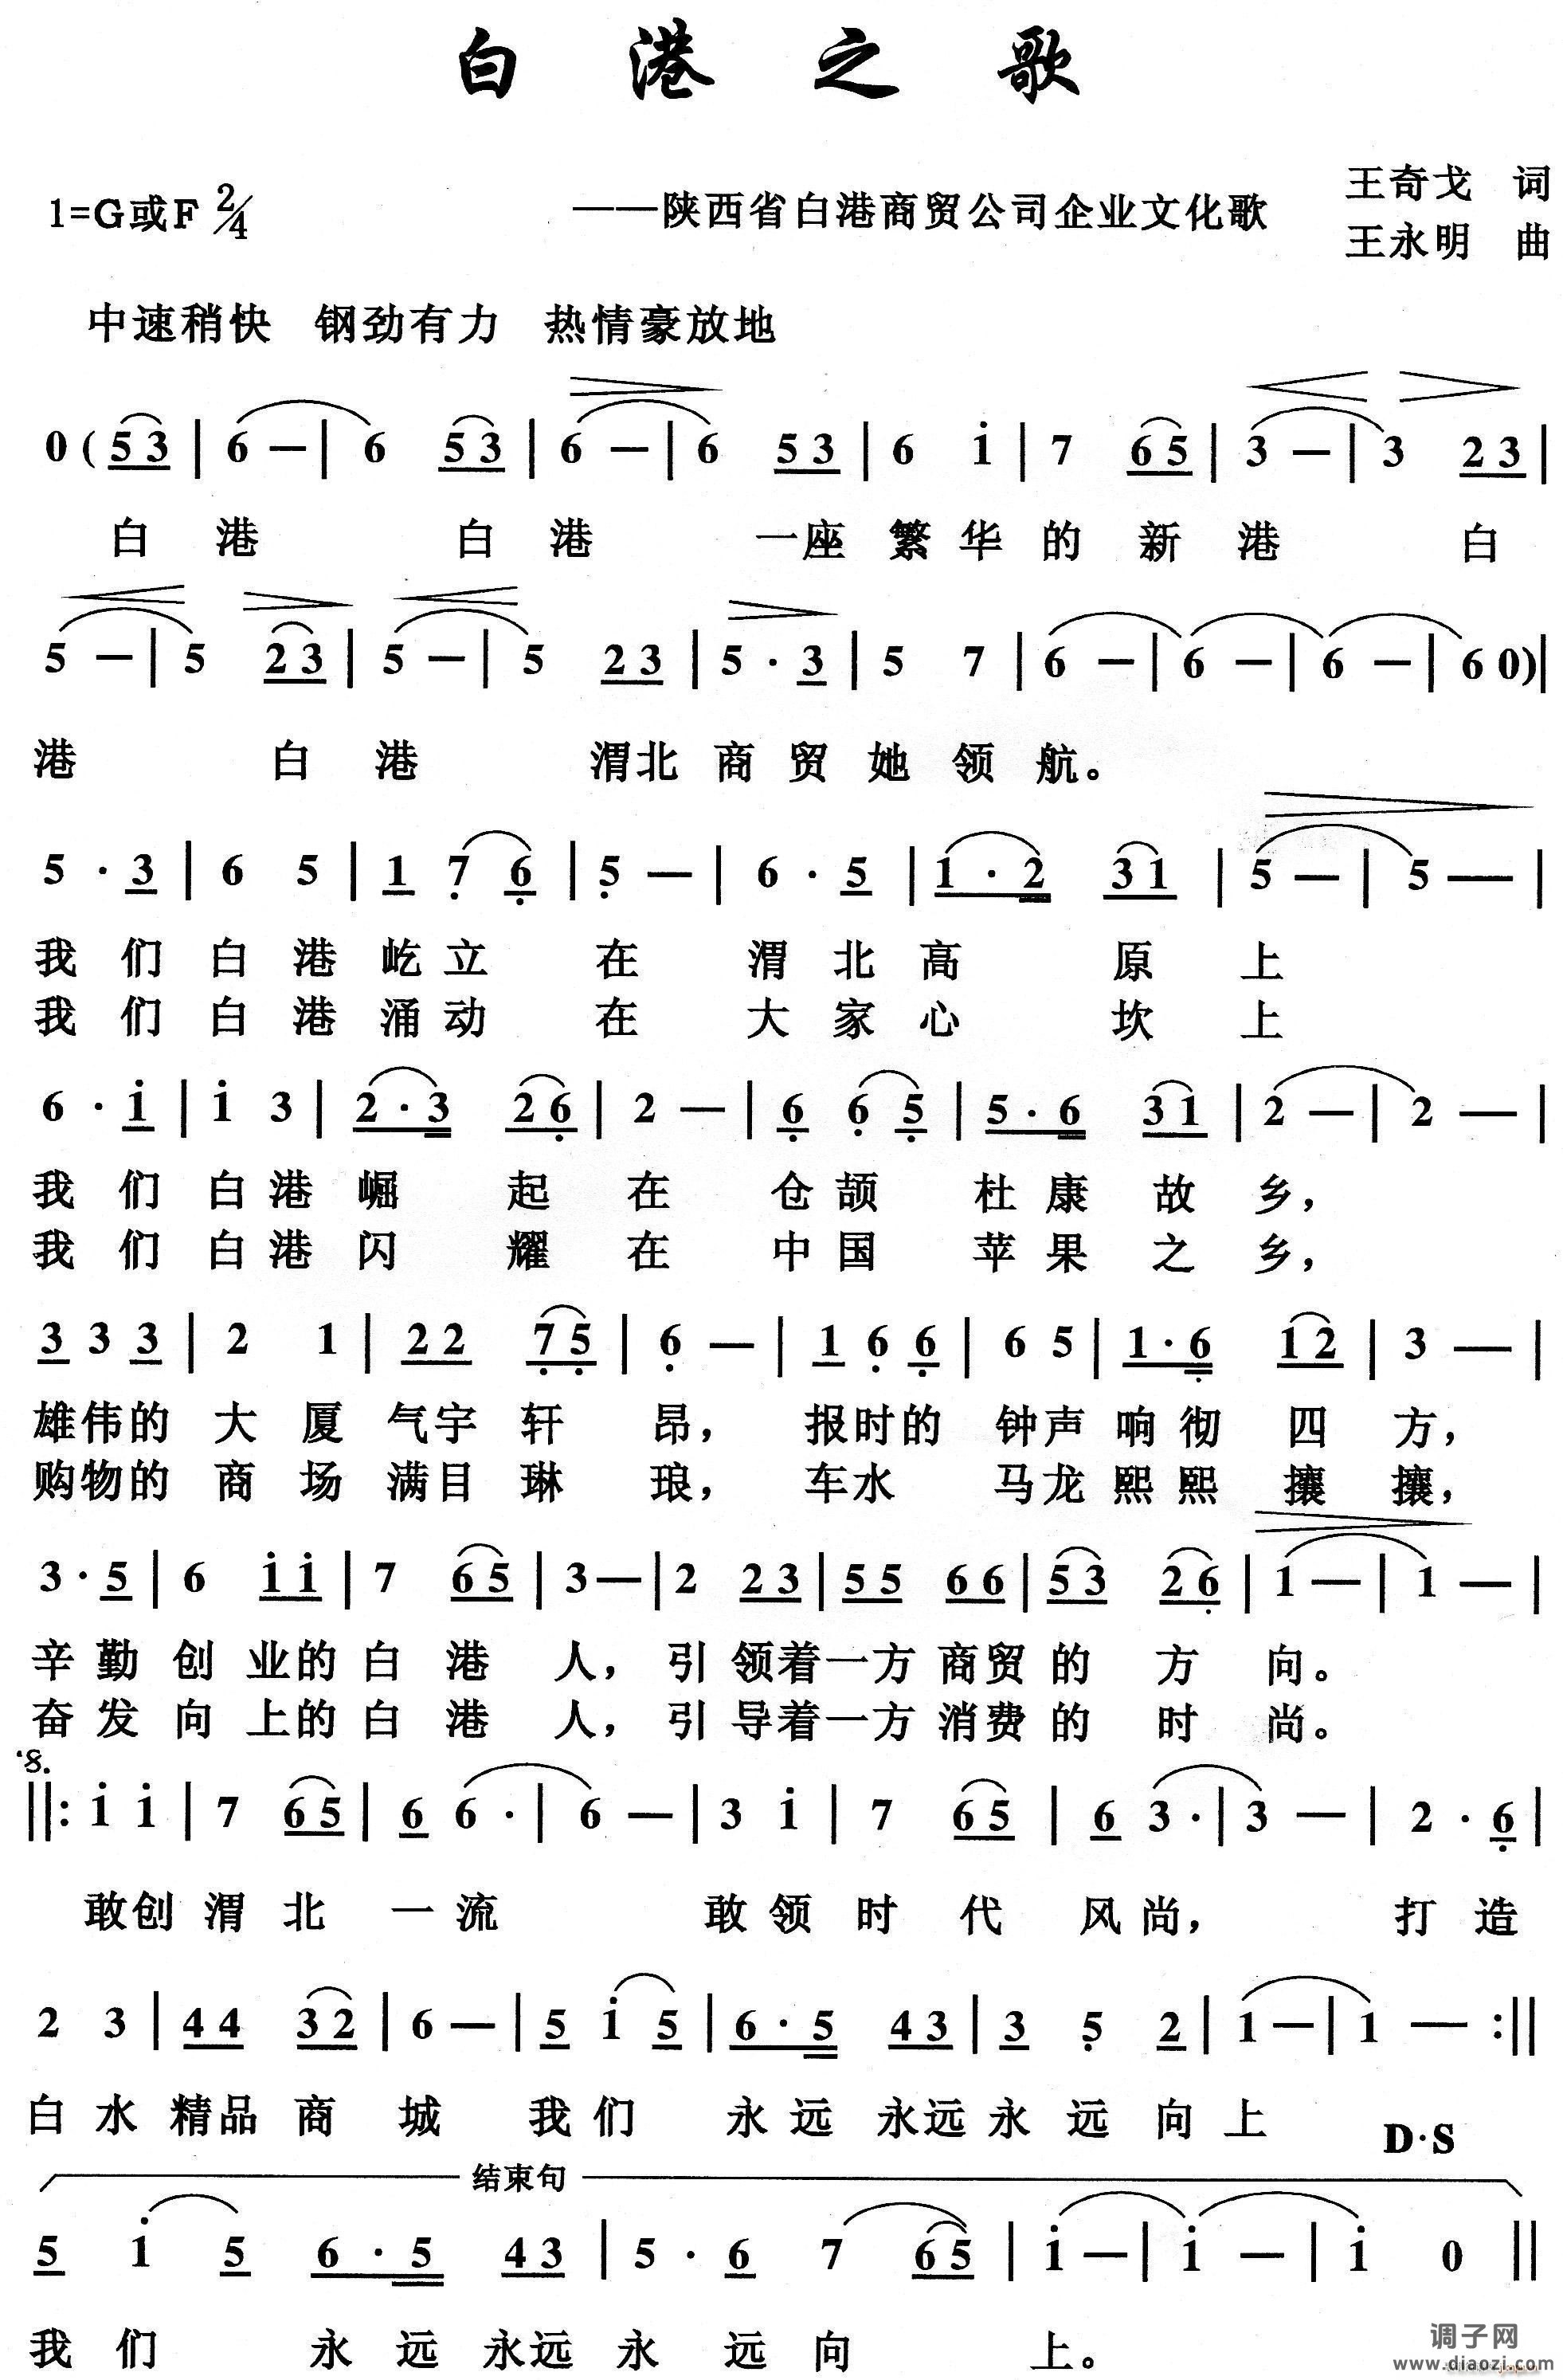 白港之歌
1=G或F 2/4 ——陕西省白港商贸公司企业文化歌 王奇戈 词
王永明 曲
中速稍快 钢劲有力 热情豪放地
0 ( 5 3 | 6 — | 6 5 3 | 6 — | 6 5 3 | 6 i | 7 6 5 | 3 — | 3 2 3 |
白 港 白 港 一座 繁 华 的 新 港 白
5 — | 5 2 3 | 5 — | 5 2 3 | 5 · 3 | 5 7 | 6 — | 6 — | 6 — | 6 0 ) |
港 白 港 渭北 商 贸 她 领 航。
5 · 3 | 6 5 | 1 7 6 | 5 — | 6 · 5 | 1 · 2 3 1 | 5 — | 5 — |
我 们 白 港 屹 立 在 渭 北 高 原 上
我 们 白 港 涌 动 在 大 家 心 坎 上
6 · i | i 3 | 2 · 3 2 6 | 2 — | 6 6 5 | 5 · 6 3 1 | 2 — | 2 — |
我 们 白 港 崛 起 在 仓 颉 杜 康 故 乡，
我 们 白 港 闪 耀 在 中 国 苹 果 之 乡，
3 3 3 | 2 1 | 2 2 7 5 | 6 — | 1 6 6 | 6 5 | 1 · 6 1 2 | 3 — |
雄伟的 大 厦 气宇 轩 昂， 报时的 钟声 响 彻 四 方，
购物的 商 场 满目 琳 琅， 车水 马龙 熙 熙 攘 攘，
3 · 5 | 6 i i | 7 6 5 | 3 — | 2 2 3 | 5 5 6 6 | 5 3 2 6 | 1 — | 1 — |
辛 勤 创 业的 白 港 人， 引 领着一方 商贸 的 方 向。
奋 发 向 上的 白 港 人， 引 导着一方 消费 的 时 尚。
||: i i | 7 6 5 | 6 6 · | 6 — | 3 i | 7 6 5 | 6 3 · | 3 — | 2 · 6 |
敢创 渭 北 一 流 敢 领 时 代 风 尚， 打 造
2 3 | 4 4 3 2 | 6 — | 5 i 5 | 6 · 5 4 3 | 3 5 2 | 1 — | 1 — :||
白 水 精品 商 城 我 们 永 远 永远 永 远 向 上
D·S
结束句
5 i 5 6 · 5 4 3 | 5 · 6 7 6 5 | i — | i — | i 0 ||
我 们 永 远 永远 永 远 向 上。
调子网
www.diaozi.com